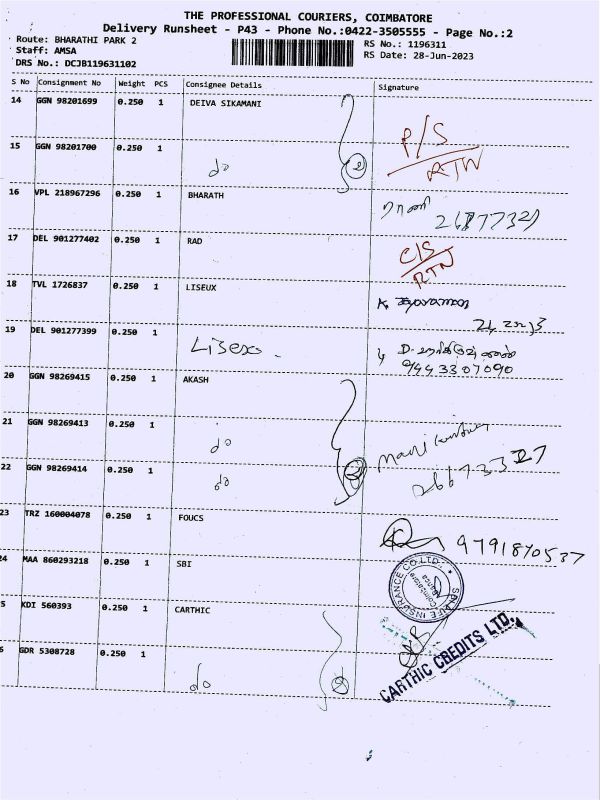 THE PROFESSIONAL COURIERS, COIMBATORE
Delivery Runsheet - P43 - Phone No.:0422-3505555 - Page No.:2
Route: BHARATHI PARK 2
RS No.: 1196311
Staff: AMSA
RS Date: 28-Jun-2023
DRS No.: DCJB119631102
S No Consignment No Weight PCS Consignee Details Signature
14 GGN 98201699 0.250 1 DEIVA SIKAMANI
P/S
RTN
15 GGN 98201700 0.250 1 do 2
16 VPL 218967296 0.250 1 BHARATH
17 DEL 901277402 0.250 1 RAD C/S
RTN
18 TVL 1726837 0.250 1 LISEUX
19 DEL 901277399 0.250 1
9443307090
20 GGN 98269415 0.250 1 AKASH
21 GGN 98269413 0.250 1 do
22 GGN 98269414 0.250 1 do
23 TRZ 160004078 0.250 1 FOUCS 9791870537
24 MAA 860293218 0.250 1 SBI
SBI LIFE INSURANCE CO LTD.
5 KDI 560393 0.250 1 CARTHIC
CARTHIC CREDITS LTD.
6 GDR 5308728 0.250 1 do